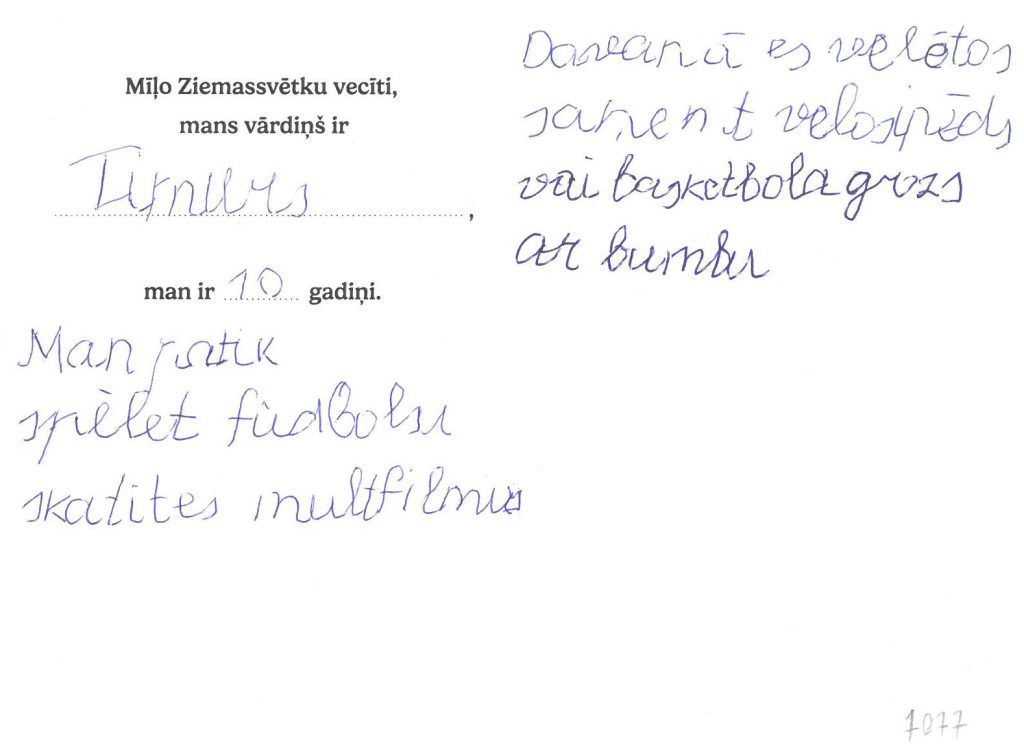 Mīļo Ziemassvētku vecīti,
mans vārdiņš ir
Timurs,
man ir 10 gadiņi.
Man patik
spēlet fūdbolu
skatites multfilmus
Davanā es vēlētos
saņemt velosipēds
vai basketbola grozs
ar bumbu
1077